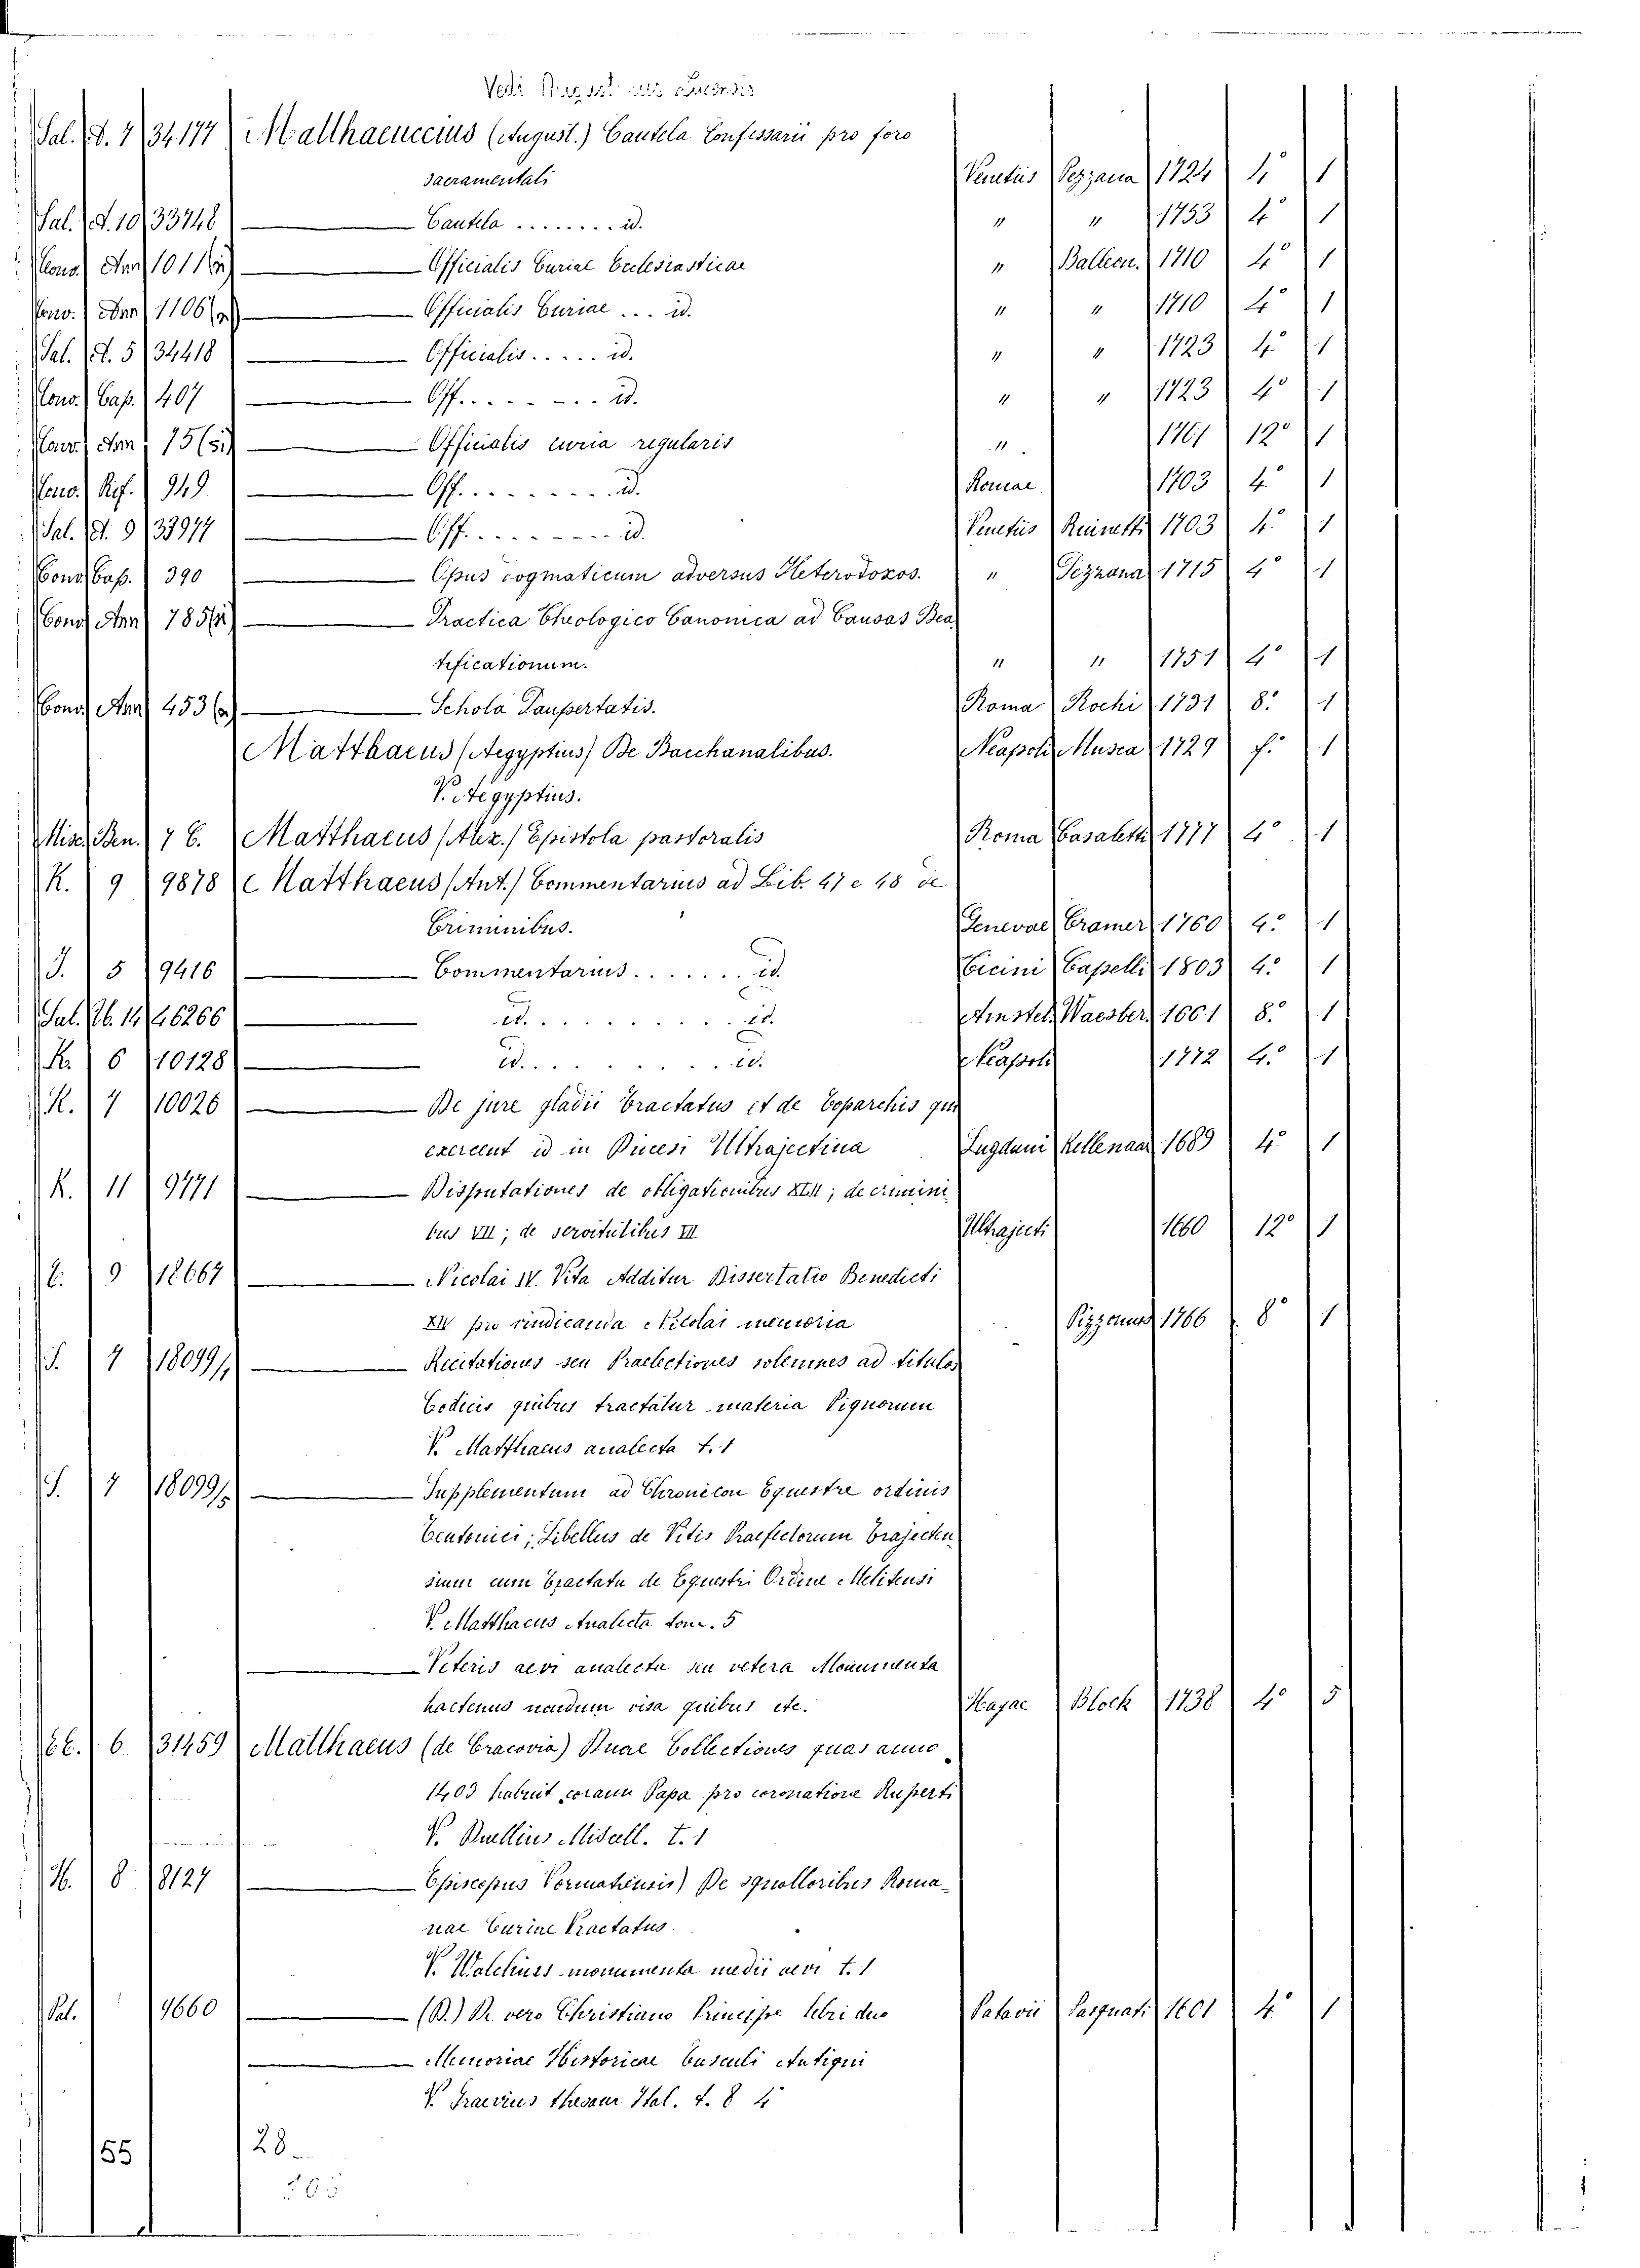 Vedi
Sal. d. 7 34177 Matthaeuccius (August.) Cautela Confessarii pro foro
sacramentali Venetiis Pezzana 1724 4° 1
Sal. d. 10 33748 — Cautela ........ id. " " 1753 4° 1
Conv. Ann 1011 — Officialis Curiae Ecclesiasticae " Balleon. 1710 4° 1
Conv. Ann 1106 — Officialis Curiae ... id. " " 1710 4° 1
Sal. d. 5 34418 — Officialis ..... id. " " 1723 4° 1
Conv. Cap. 407 — Off. ....... id. " " 1723 4° 1
Conv. Ann 75 — Officialis curia regularis " 1761 12° 1
Conv. Ref. 949 — Off. ........ id. Romae 1703 4° 1
Sal. d. 9 33977 — Off. ........ id. Venetiis 1703 4° 1
Conv. Cap. 390 — Opus dogmaticum adversus Heterodoxos. " Pezzana 1715 4° 1
Conv. Ann 785 — Practica Theologico Canonica ad Causas Bea
tificationum. " " 1751 4° 1
Conv. Ann 453 — Schola Paupertatis. Roma Rochi 1731 8° 1
Matthaeus (Aegyptius) De Bacchanalibus. Neapoli Musca 1729 f. 1
V. Aegyptius.
Misc. Ben. 7 C. Matthaeus (Alex.) Epistola pastoralis Roma Casaletti 1777 4° 1
K. 9 9878 Matthaeus (Ant.) Commentarius ad Lib. 47 e 48 de
Criminibus. Genevae Cramer 1760 4° 1
J. 5 9416 — Commentarius ...... id. Ticini Capelli 1803 4° 1
Sal. Ib. 14 46266 — id. ......... id. Amstel. Waesber. 1661 8° 1
K. 6 10128 — id. ......... id. Neapoli 1772 4° 1
K. 7 10026 — De jure gladii Tractatus et de Toparchis qui
exercent id in Diocesi Ultrajectina Lugduni Kellenaar 1689 4° 1
K. 11 9771 — Disputationes de obligationibus XLII; de crimini
bus VII; de servitutibus III Ultrajecti 1660 12° 1
C. 9 18667 — Nicolai IV Vita Additur Dissertatio Benedicti
XIV pro vindicanda Nicolai memoria Pizzorno 1766 8° 1
S. 7 18099/1 — Recitationes seu Praelectiones solemnes ad titulos
Codicis quibus tractatur materia Pignorum
V. Matthaeus analecta t. 1
S. 7 18099/5 — Supplementum ad Chronicon Equestre ordinis
Teutonici; Libellus de Vitis Praefectorum Trajecten
sium cum Tractatu de Equestri Ordine Melitensi
V. Matthaeus Analecta tom. 5
— Veteris aevi analecta seu vetera Monumenta
hactenus nondum visa quibus etc. Hagae Block 1738 4° 5
6 31459 Matthaeus (de Cracovia) Duae Collectiones quas anno
1403 habuit coram Papa pro coronatione Ruperti
V. Duellius Miscell. t. 1
H. 8 8127 — Episcopus Vormatiensis) De squalloribus Roma-
nae Curiae Tractatus
V. Walchius monumenta medii aevi t. 1
Pal. 4660 — (B.) De vero Christiano Principe libri duo Patavii Pasquati 1601 4° 1
— Memoriae Historicae Tusculi Antiqui
V. Graevius thesaur Ital. t. 8 4
55 28